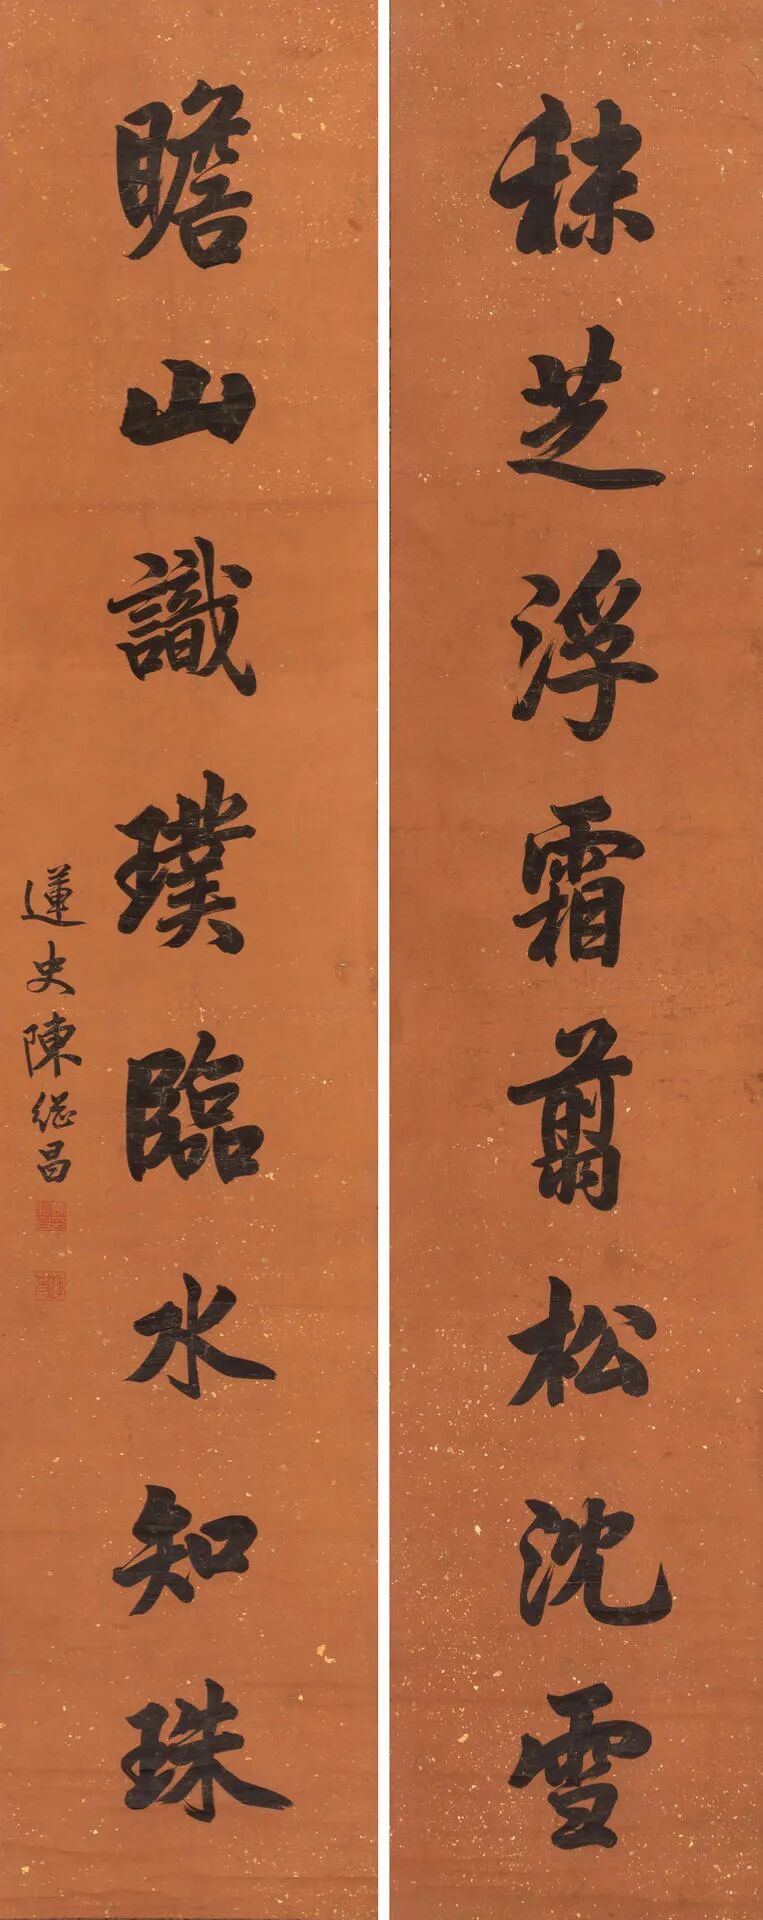 秣芝浮霜翦松沈雪
瞻山識璞臨水知珠
蓮史陳継昌